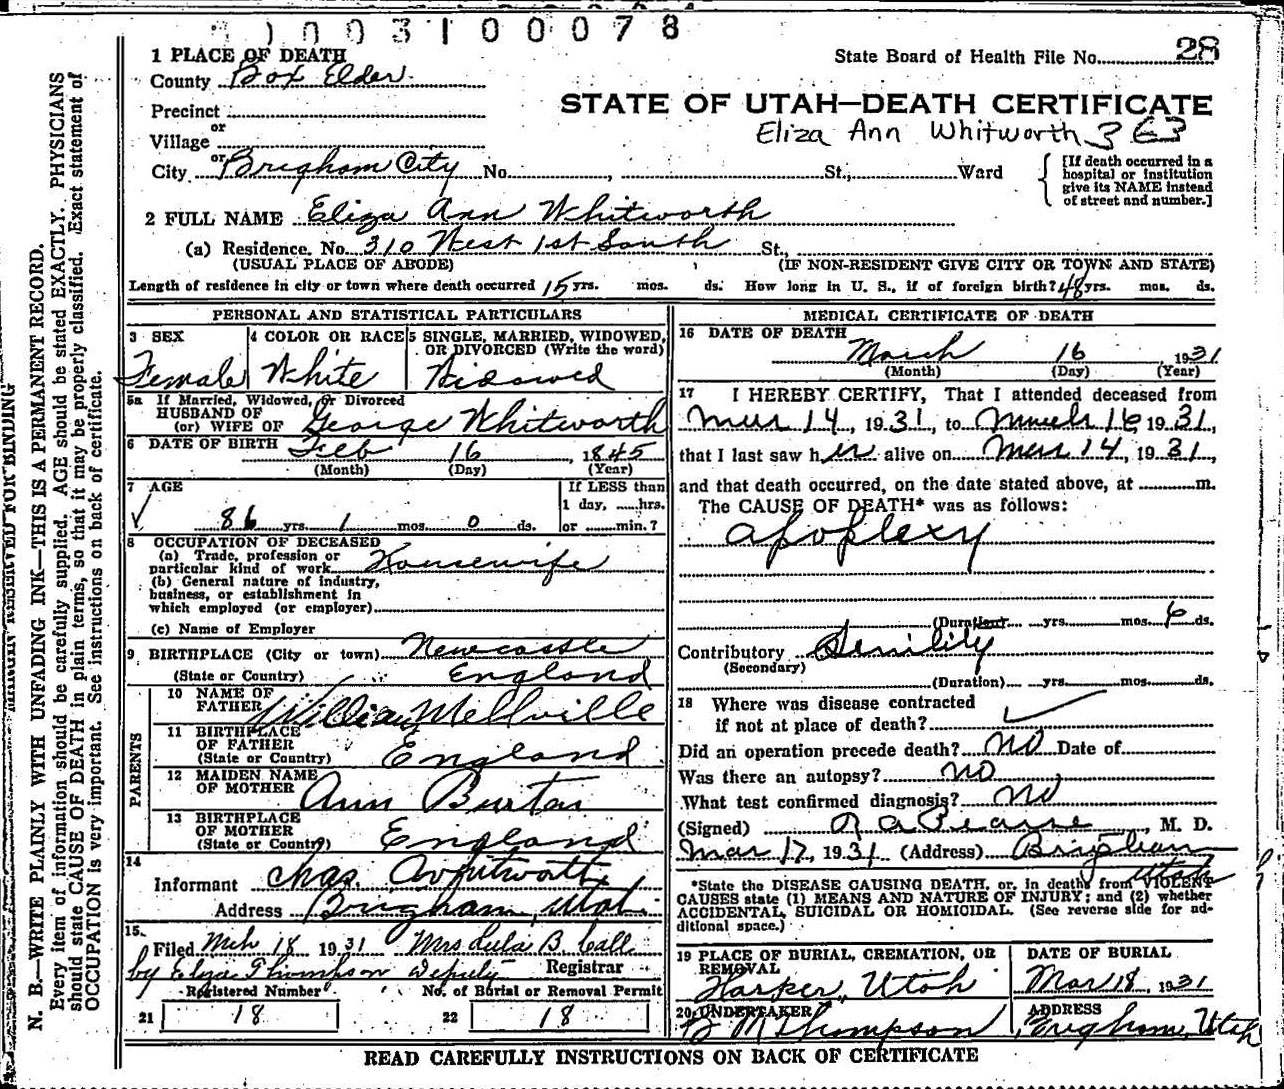 1003100078
1 PLACE OF DEATH
State Board of Health File No. 28
County Box Elder
STATE OF UTAH—DEATH CERTIFICATE
Precinct
Eliza Ann Whitworth 363
or
Village
or
City Brigham City No. , St., Ward
[If death occurred in a
hospital or institution
give its NAME instead
of street and number.]
2 FULL NAME Eliza Ann Whitworth
(a) Residence. No. 310 West 1st South St.,
(USUAL PLACE OF ABODE) (IF NON-RESIDENT GIVE CITY OR TOWN AND STATE)
Length of residence in city or town where death occurred 15 yrs. mos. ds. How long in U. S., if of foreign birth? 48 yrs. mos. ds.
PERSONAL AND STATISTICAL PARTICULARS
3 SEX
Female
4 COLOR OR RACE
White
5 SINGLE, MARRIED, WIDOWED,
OR DIVORCED (Write the word)
Widowed
5a If Married, Widowed, or Divorced
HUSBAND OF
(or) WIFE OF George Whitworth
6 DATE OF BIRTH Feb 16, 1845
(Month) (Day) (Year)
7 AGE
86 yrs. 1 mos. 0 ds.
If LESS than
1 day, ......hrs.
or ......min.?
8 OCCUPATION OF DECEASED
(a) Trade, profession or
particular kind of work Housewife
(b) General nature of industry,
business, or establishment in
which employed (or employer)
(c) Name of Employer
9 BIRTHPLACE (City or town) Newcastle
(State or Country) England
PARENTS
10 NAME OF
FATHER William Mellville
11 BIRTHPLACE
OF FATHER
(State or Country) England
12 MAIDEN NAME
OF MOTHER Ann Burton
13 BIRTHPLACE
OF MOTHER
(State or Country) England
14
Informant Chas. Whitworth
Address Brigham, Utah
15.
Filed Mch 18 1931 Mrs Lula B. Call
by Elza Thompson Deputy Registrar
Registered Number No. of Burial or Removal Permit
21 18 22 18
MEDICAL CERTIFICATE OF DEATH
16 DATE OF DEATH
March 16, 1931
(Month) (Day) (Year)
17 I HEREBY CERTIFY, That I attended deceased from
Mar 14, 1931, to March 16 1931,
that I last saw her alive on Mar 14, 1931,
and that death occurred, on the date stated above, at m.
The CAUSE OF DEATH* was as follows:
apoplexy
(Duration) yrs. mos. 6 ds.
Contributory Senility
(Secondary)
(Duration) yrs. mos. ds.
18 Where was disease contracted
if not at place of death?
Did an operation precede death? no Date of
Was there an autopsy? no
What test confirmed diagnosis? no
(Signed) R A Pearse, M. D.
Mar 17, 1931 (Address) Brigham
Utah
*State the DISEASE CAUSING DEATH, or, in deaths from VIOLENT
CAUSES state (1) MEANS AND NATURE OF INJURY; and (2) whether
ACCIDENTAL, SUICIDAL OR HOMICIDAL. (See reverse side for ad-
ditional space.)
19 PLACE OF BURIAL, CREMATION, OR
REMOVAL
Harper, Utah
DATE OF BURIAL
Mar 18, 1931
20 UNDERTAKER
B M Thompson
ADDRESS
Brigham, Utah
READ CAREFULLY INSTRUCTIONS ON BACK OF CERTIFICATE
MARGIN RESERVED FOR BINDING
N. B.—WRITE PLAINLY WITH UNFADING INK—THIS IS A PERMANENT RECORD.
Every item of information should be carefully supplied. AGE should be stated EXACTLY. PHYSICIANS
should state CAUSE OF DEATH in plain terms, so that it may be properly classified. Exact statement of
OCCUPATION is very important. See instructions on back of certificate.